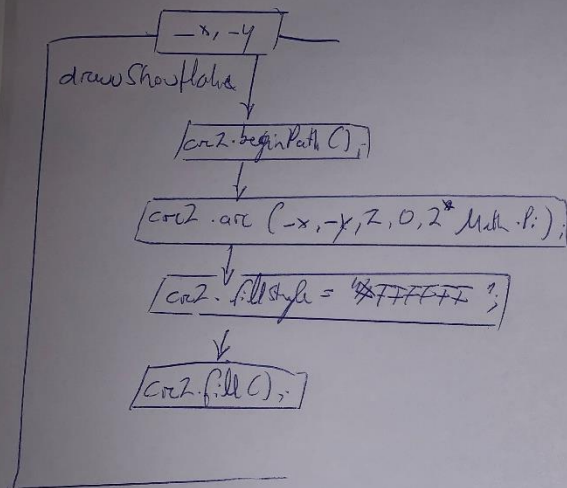 _x, _y
drawSnowflake
cnt2.beginPath();
cnt2.arc (_x, _y, 2, 0, 2* Math.Pi);
cnt2.fillStyle = "#FFFFFF";
cnt2.fill();